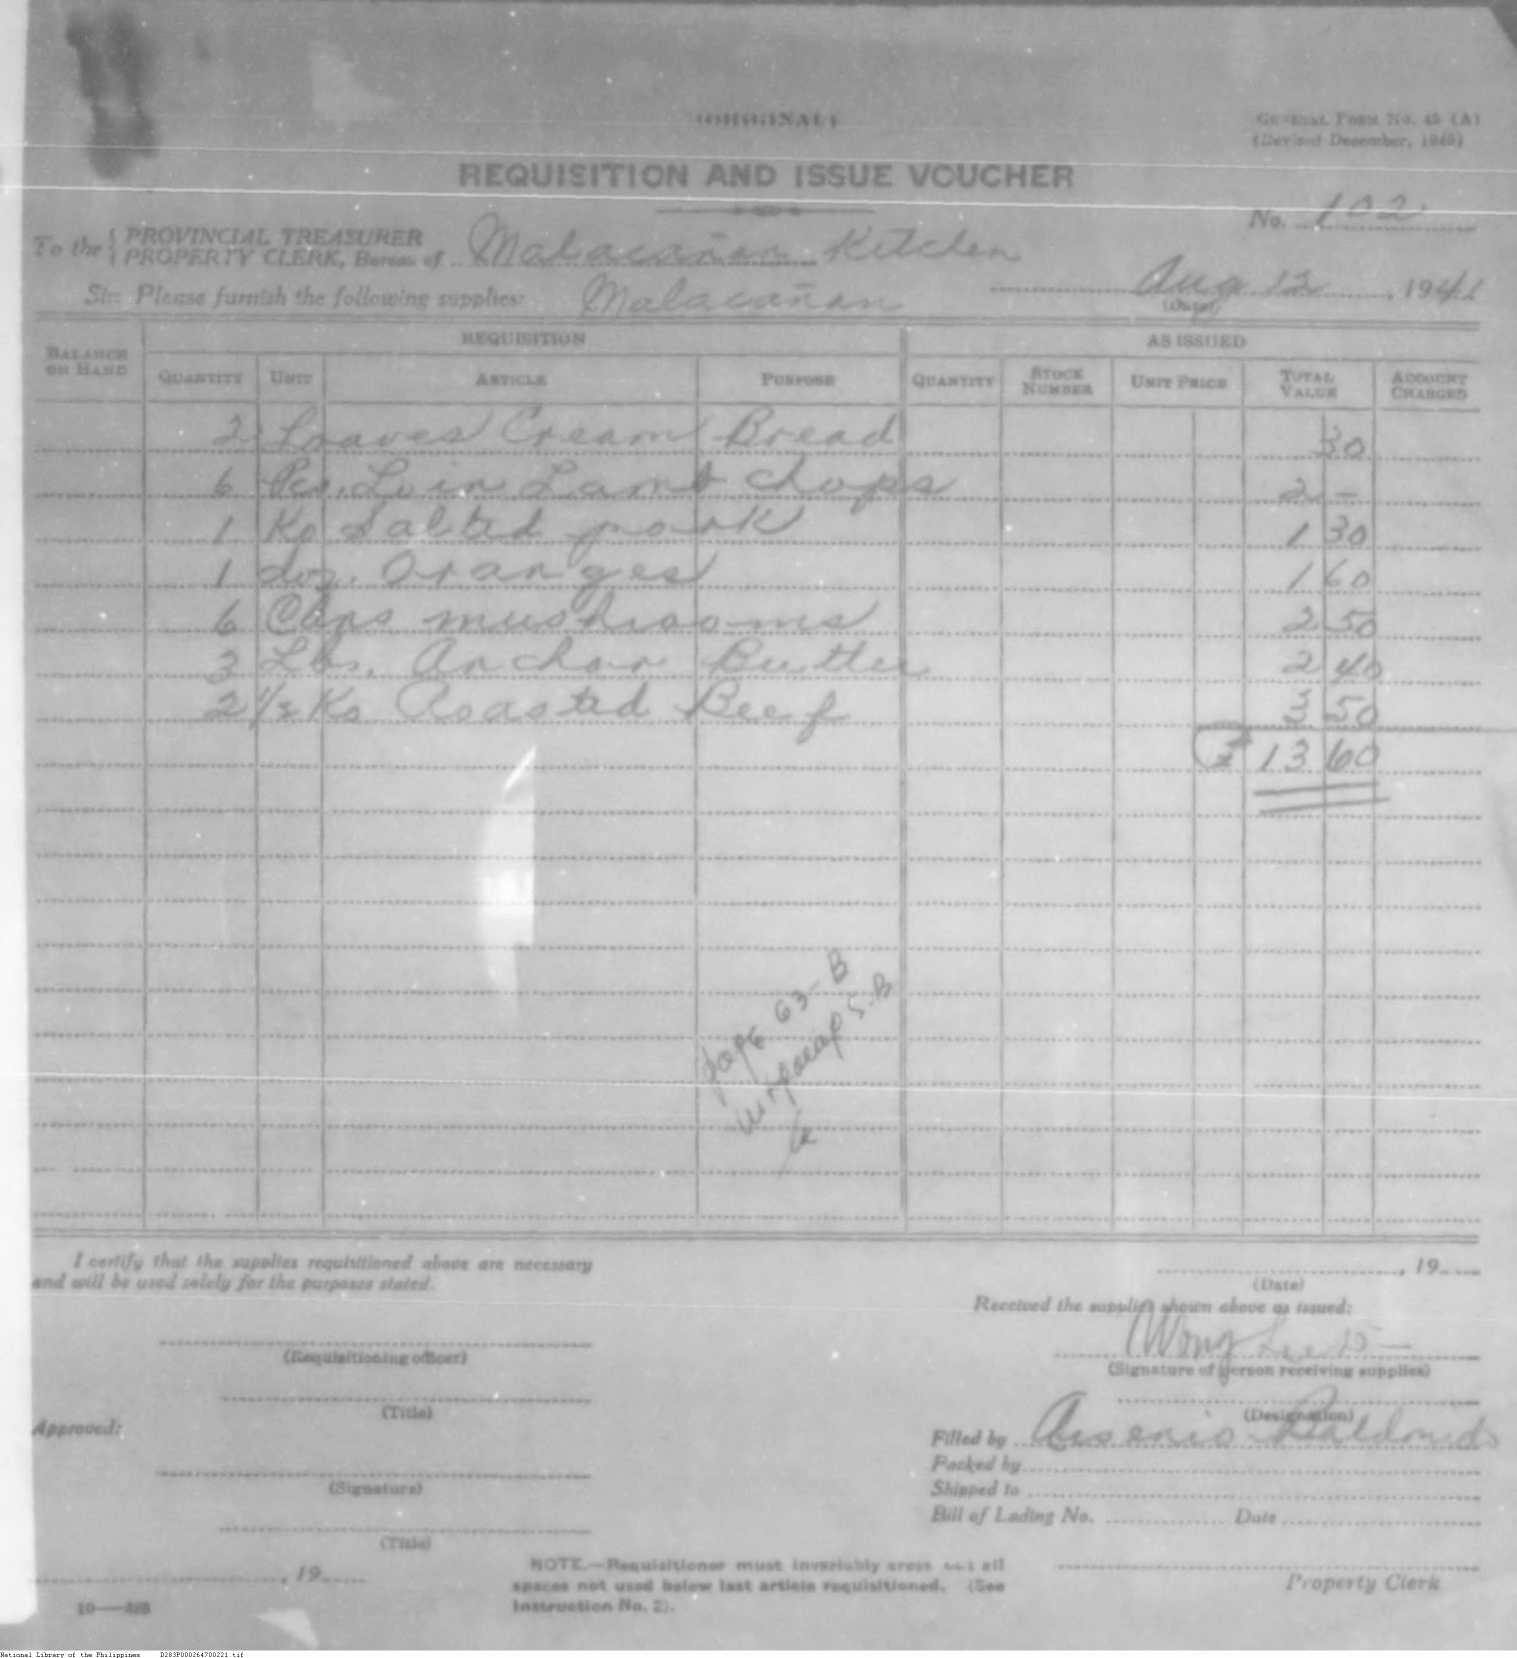 (ORIGINAL)
GENERAL FORM No. 45 (A)
(Revised December, 1940)
REQUISITION AND ISSUE VOUCHER
No. 102
To the { PROVINCIAL TREASURER
PROPERTY CLERK, Bureau of Malacañan Kitchen
Aug 12, 1941
(Date)
Sir: Please furnish the following supplies: Malacañan
BALANCE ON HAND REQUISITION AS ISSUED
QUANTITY UNIT ARTICLE PURPOSE QUANTITY STOCK NUMBER UNIT PRICE TOTAL VALUE ACCOUNT CHARGED
2 Loaves Cream Bread 30
6 Pcs. Loin Lamb Chops 2 -
1 Ko Salted pork 1 30
1 doz. Oranges 1 60
6 Caps mushrooms 2 50
3 Lbs. Anchor Butter 2 40
2 1/2 Ko Roasted Beef 3 50
₱ 13 60
63-B
I certify that the supplies requisitioned above are necessary
and will be used solely for the purposes stated.
, 19
(Date)
Received the supplies shown above as issued:
Wong
(Requisitioning officer)
(Signature of person receiving supplies)
(Title)
(Designation)
Approved:
Filled by Arsenio
Packed by
(Signature)
Shipped to
Bill of Lading No. Date
(Title)
, 19
NOTE.—Requisitioner must invariably cross out all
spaces not used below last article requisitioned. (See
Instruction No. 2).
Property Clerk
National Library of the Philippines D283P000264700221.tif